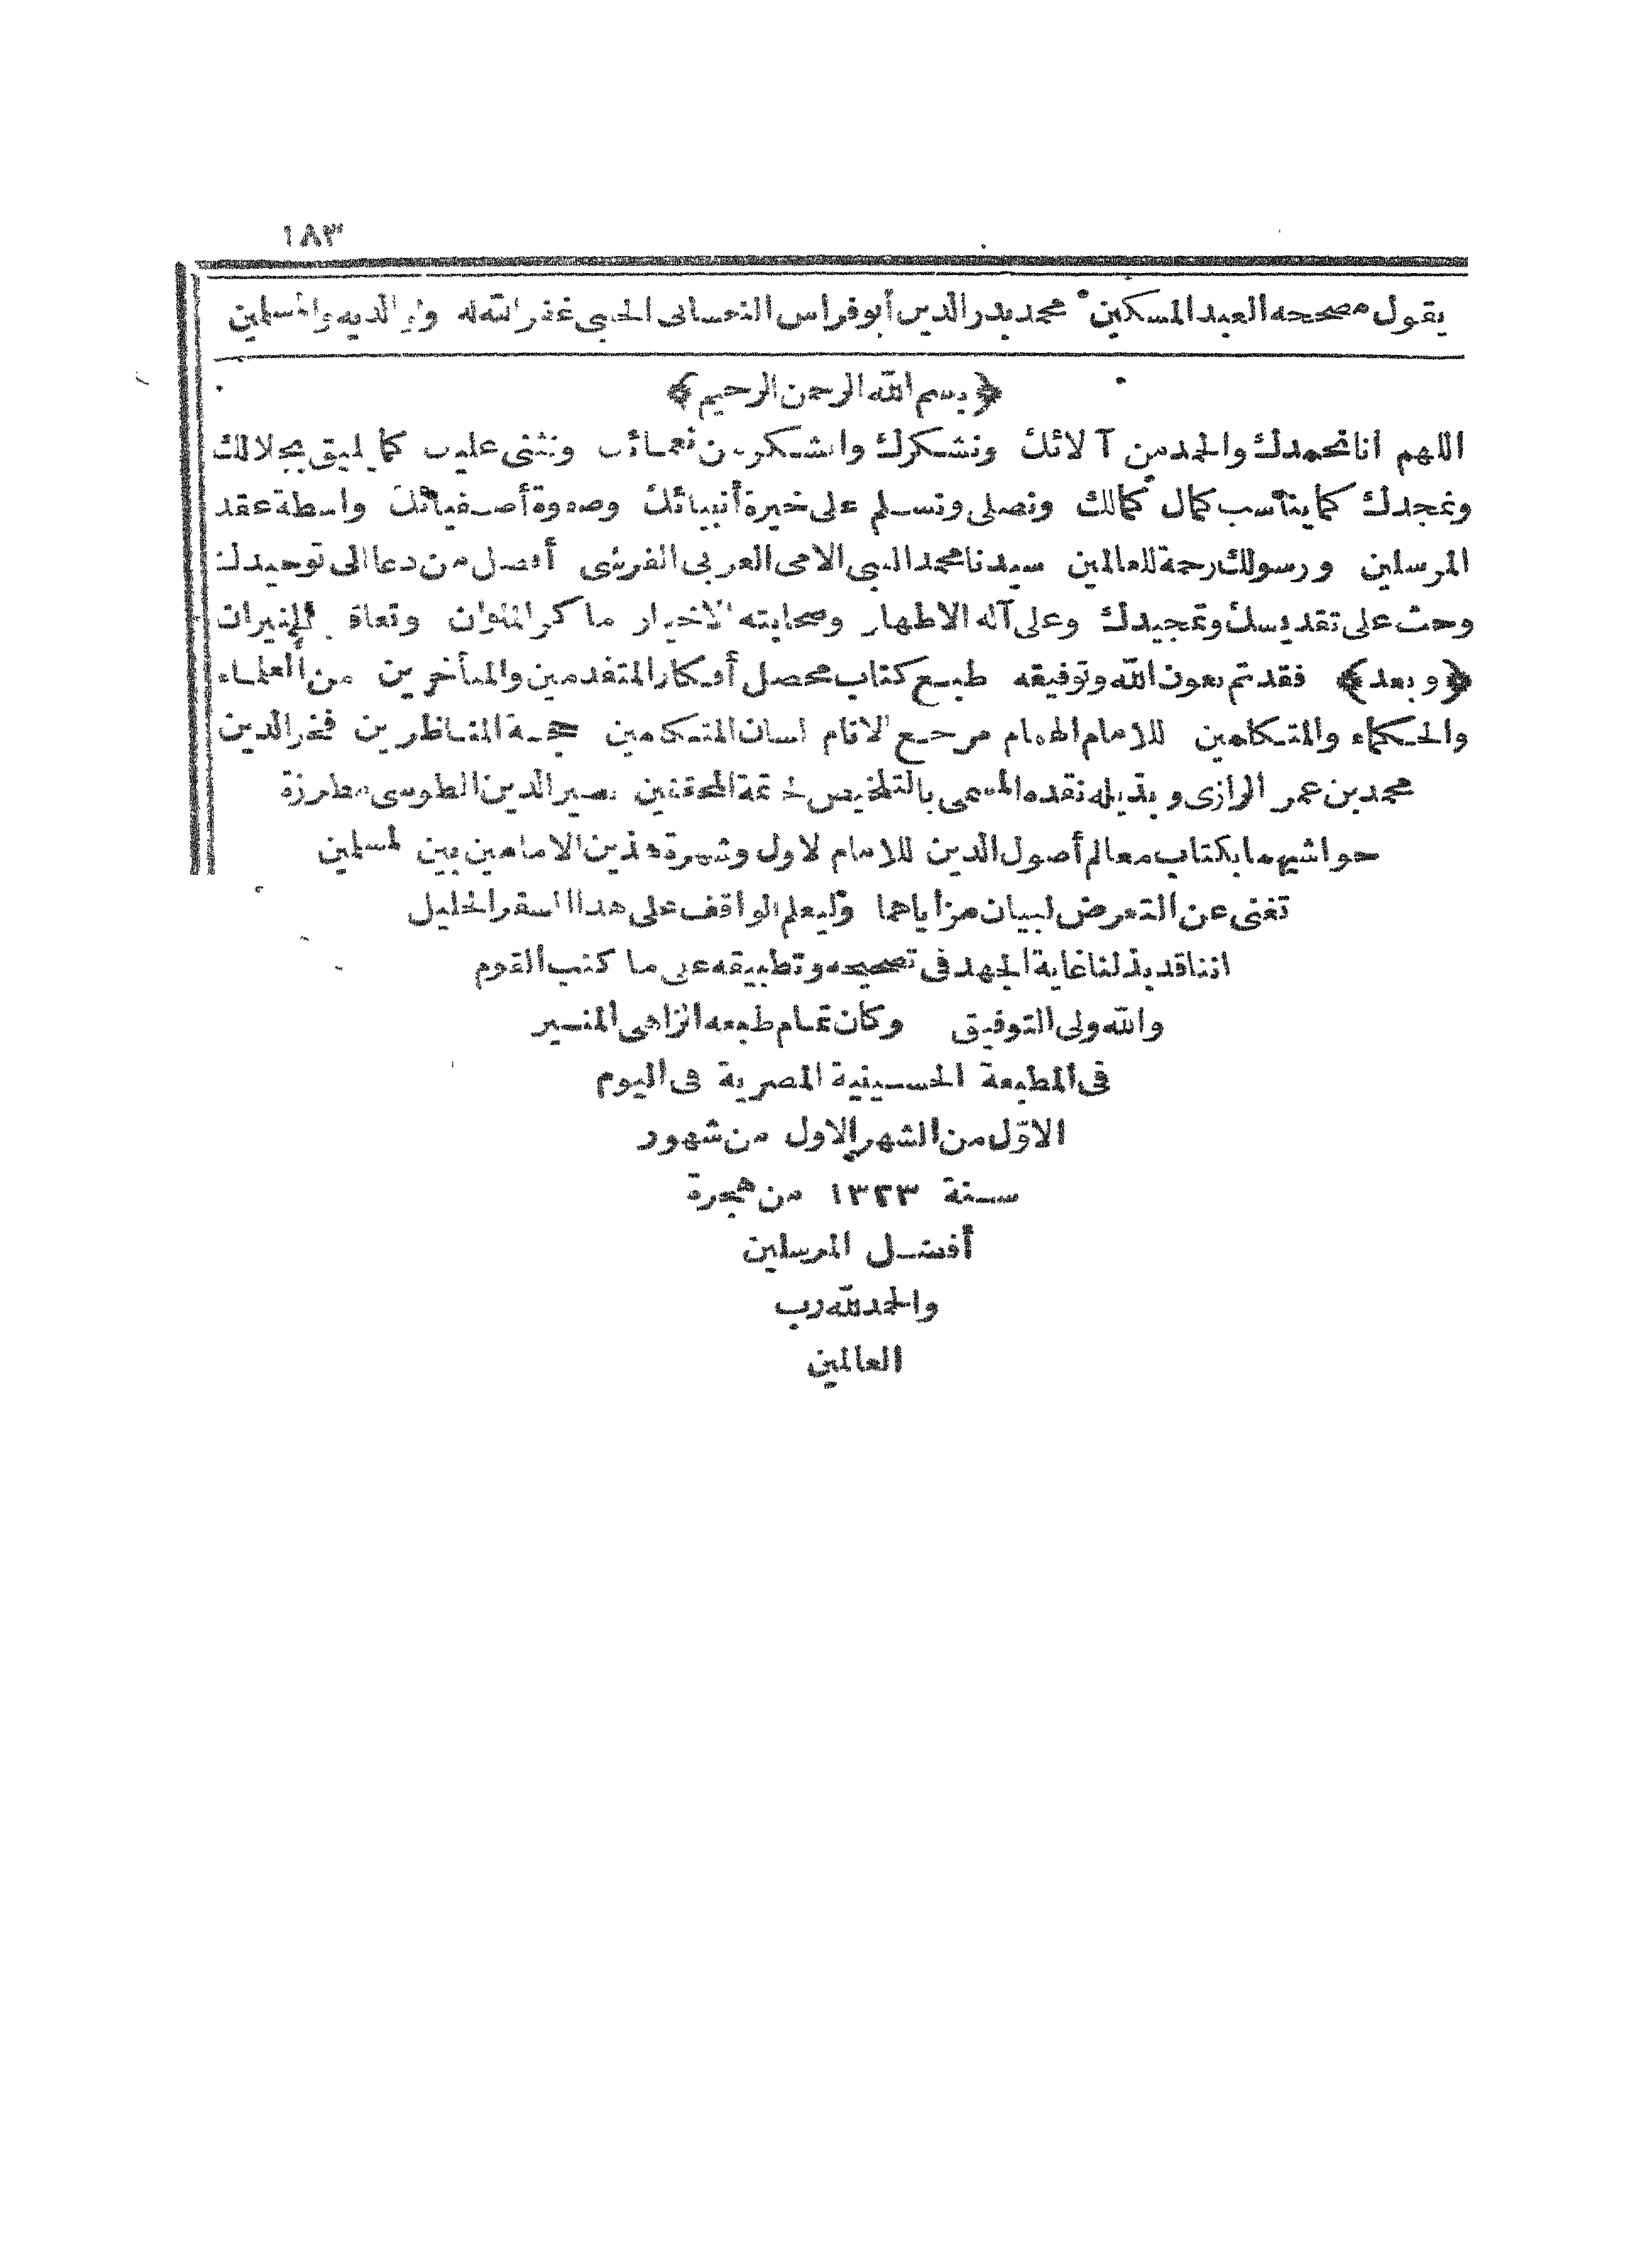 ١٨٣
يقول مصححه العبد المسكين محمد بدر الدين أبو فراس النعسانى الحلبى غفر الله له ولوالديه والمسلمين
﴿ بسم الله الرحمن الرحيم ﴾
اللهم انا نحمدك والحمد من آلائك ونشكرك والشكر من نعمائك ونثنى عليك كما يليق بجلالك
ونمجدك كما يناسب كمال كمالك ونصلى ونسلم على خيرة أنبيائك وصفوة أصفيائك واسطة عقد
المرسلين ورسولك رحمة للعالمين سيدنا محمد النبى الامى العربى القرشى أفضل من دعا الى توحيدك
وحث على تقديسك وتمجيدك وعلى آله الاطهار وصحابته الاخيار ما كر الملوان وتعاقب النيران
﴿ وبعد ﴾ فقد تم بعون الله وتوفيقه طبع كتاب محصل أفكار المتقدمين والمتأخرين من العلماء
والحكماء والمتكلمين للامام الهمام مرجع الانام لسان المتكلمين حجة المناظرين فخر الدين
محمد بن عمر الرازى وبذيله نقده المسمى بالتلخيص لخاتمة المحققين نصير الدين الطوسى مطرزة
حواشيهما بكتاب معالم أصول الدين للامام الاول وشهرة هذين الامامين بين المسلمين
تغنى عن التعرض لبيان مزاياهما وليعلم الواقف على هذا السفر الجليل
اننا قد بذلنا غاية الجهد فى تصحيحه وتطبيقه على ما كتب القوم
والله ولى التوفيق وكان تمام طبعه الزاهى المنير
فى المطبعة الحسينية المصرية فى اليوم
الاوّل من الشهر الاول من شهور
سنة ١٣٢٣ من هجرة
أفضل المرسلين
والحمد لله رب
العالمين